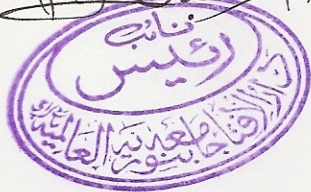 نائب
رئيس
دار الافتاء جامعه بنوريه العالميه